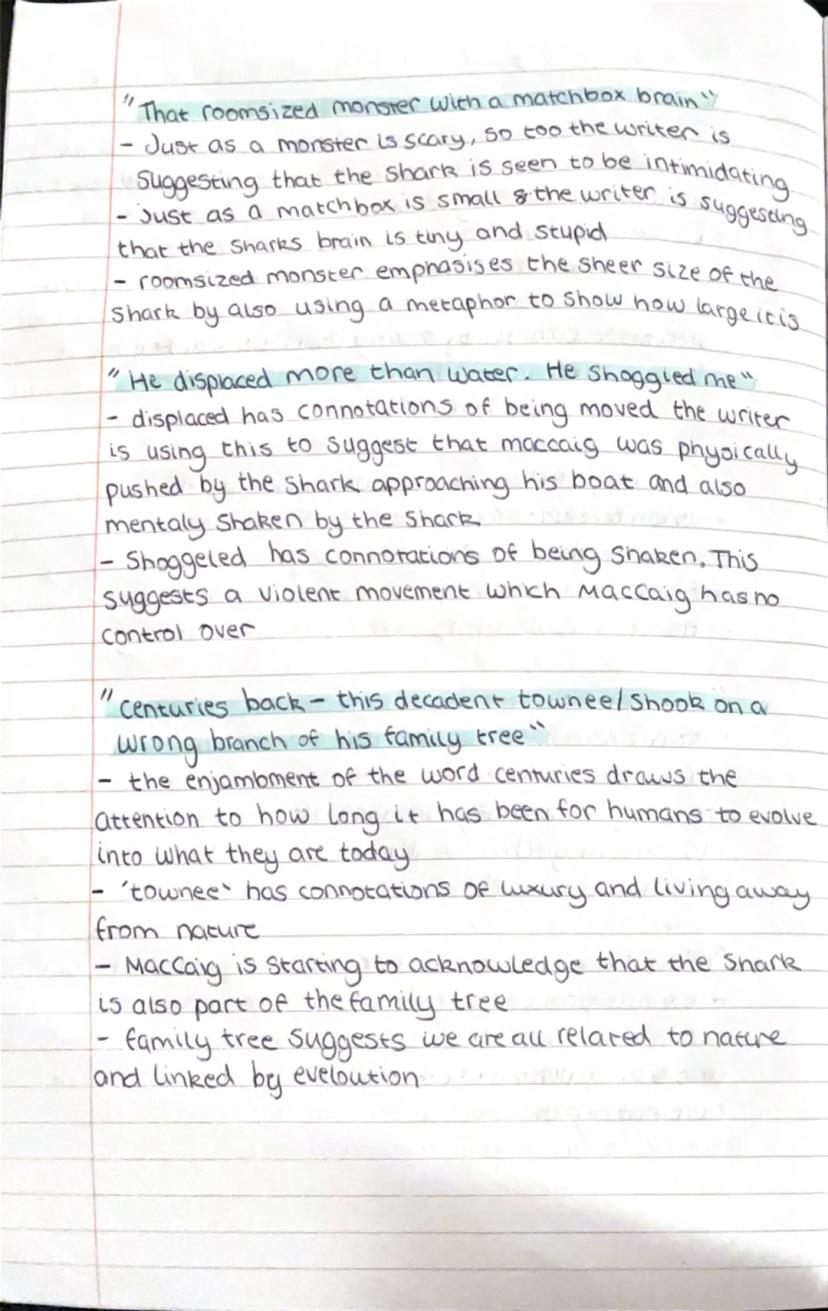 "That roomsized monster with a matchbox brain"
- Just as a monster is scary, so too the writer is
suggesting that the shark is seen to be intimidating
- Just as a matchbox is small & the writer is suggesting
that the sharks brain is tiny and stupid
- roomsized monster emphasises the sheer size of the
shark by also using a metaphor to show how large it is
"He displaced more than water. He shoggled me"
- displaced has connotations of being moved the writer
is using this to suggest that maccaig was physically
pushed by the shark approaching his boat and also
mentaly shaken by the shark
- Shoggeled has connotations of being shaken. This
suggests a violent movement which MacCaig has no
control over
"centuries back - this decadent townee/shook on a
wrong branch of his family tree"
- the enjambment of the word centuries draws the
attention to how long it has been for humans to evolve
into what they are today
- 'townee' has connotations of luxury and living away
from nature
- MacCaig is starting to acknowledge that the shark
is also part of the family tree
- family tree suggests we are all related to nature
and linked by eveloution